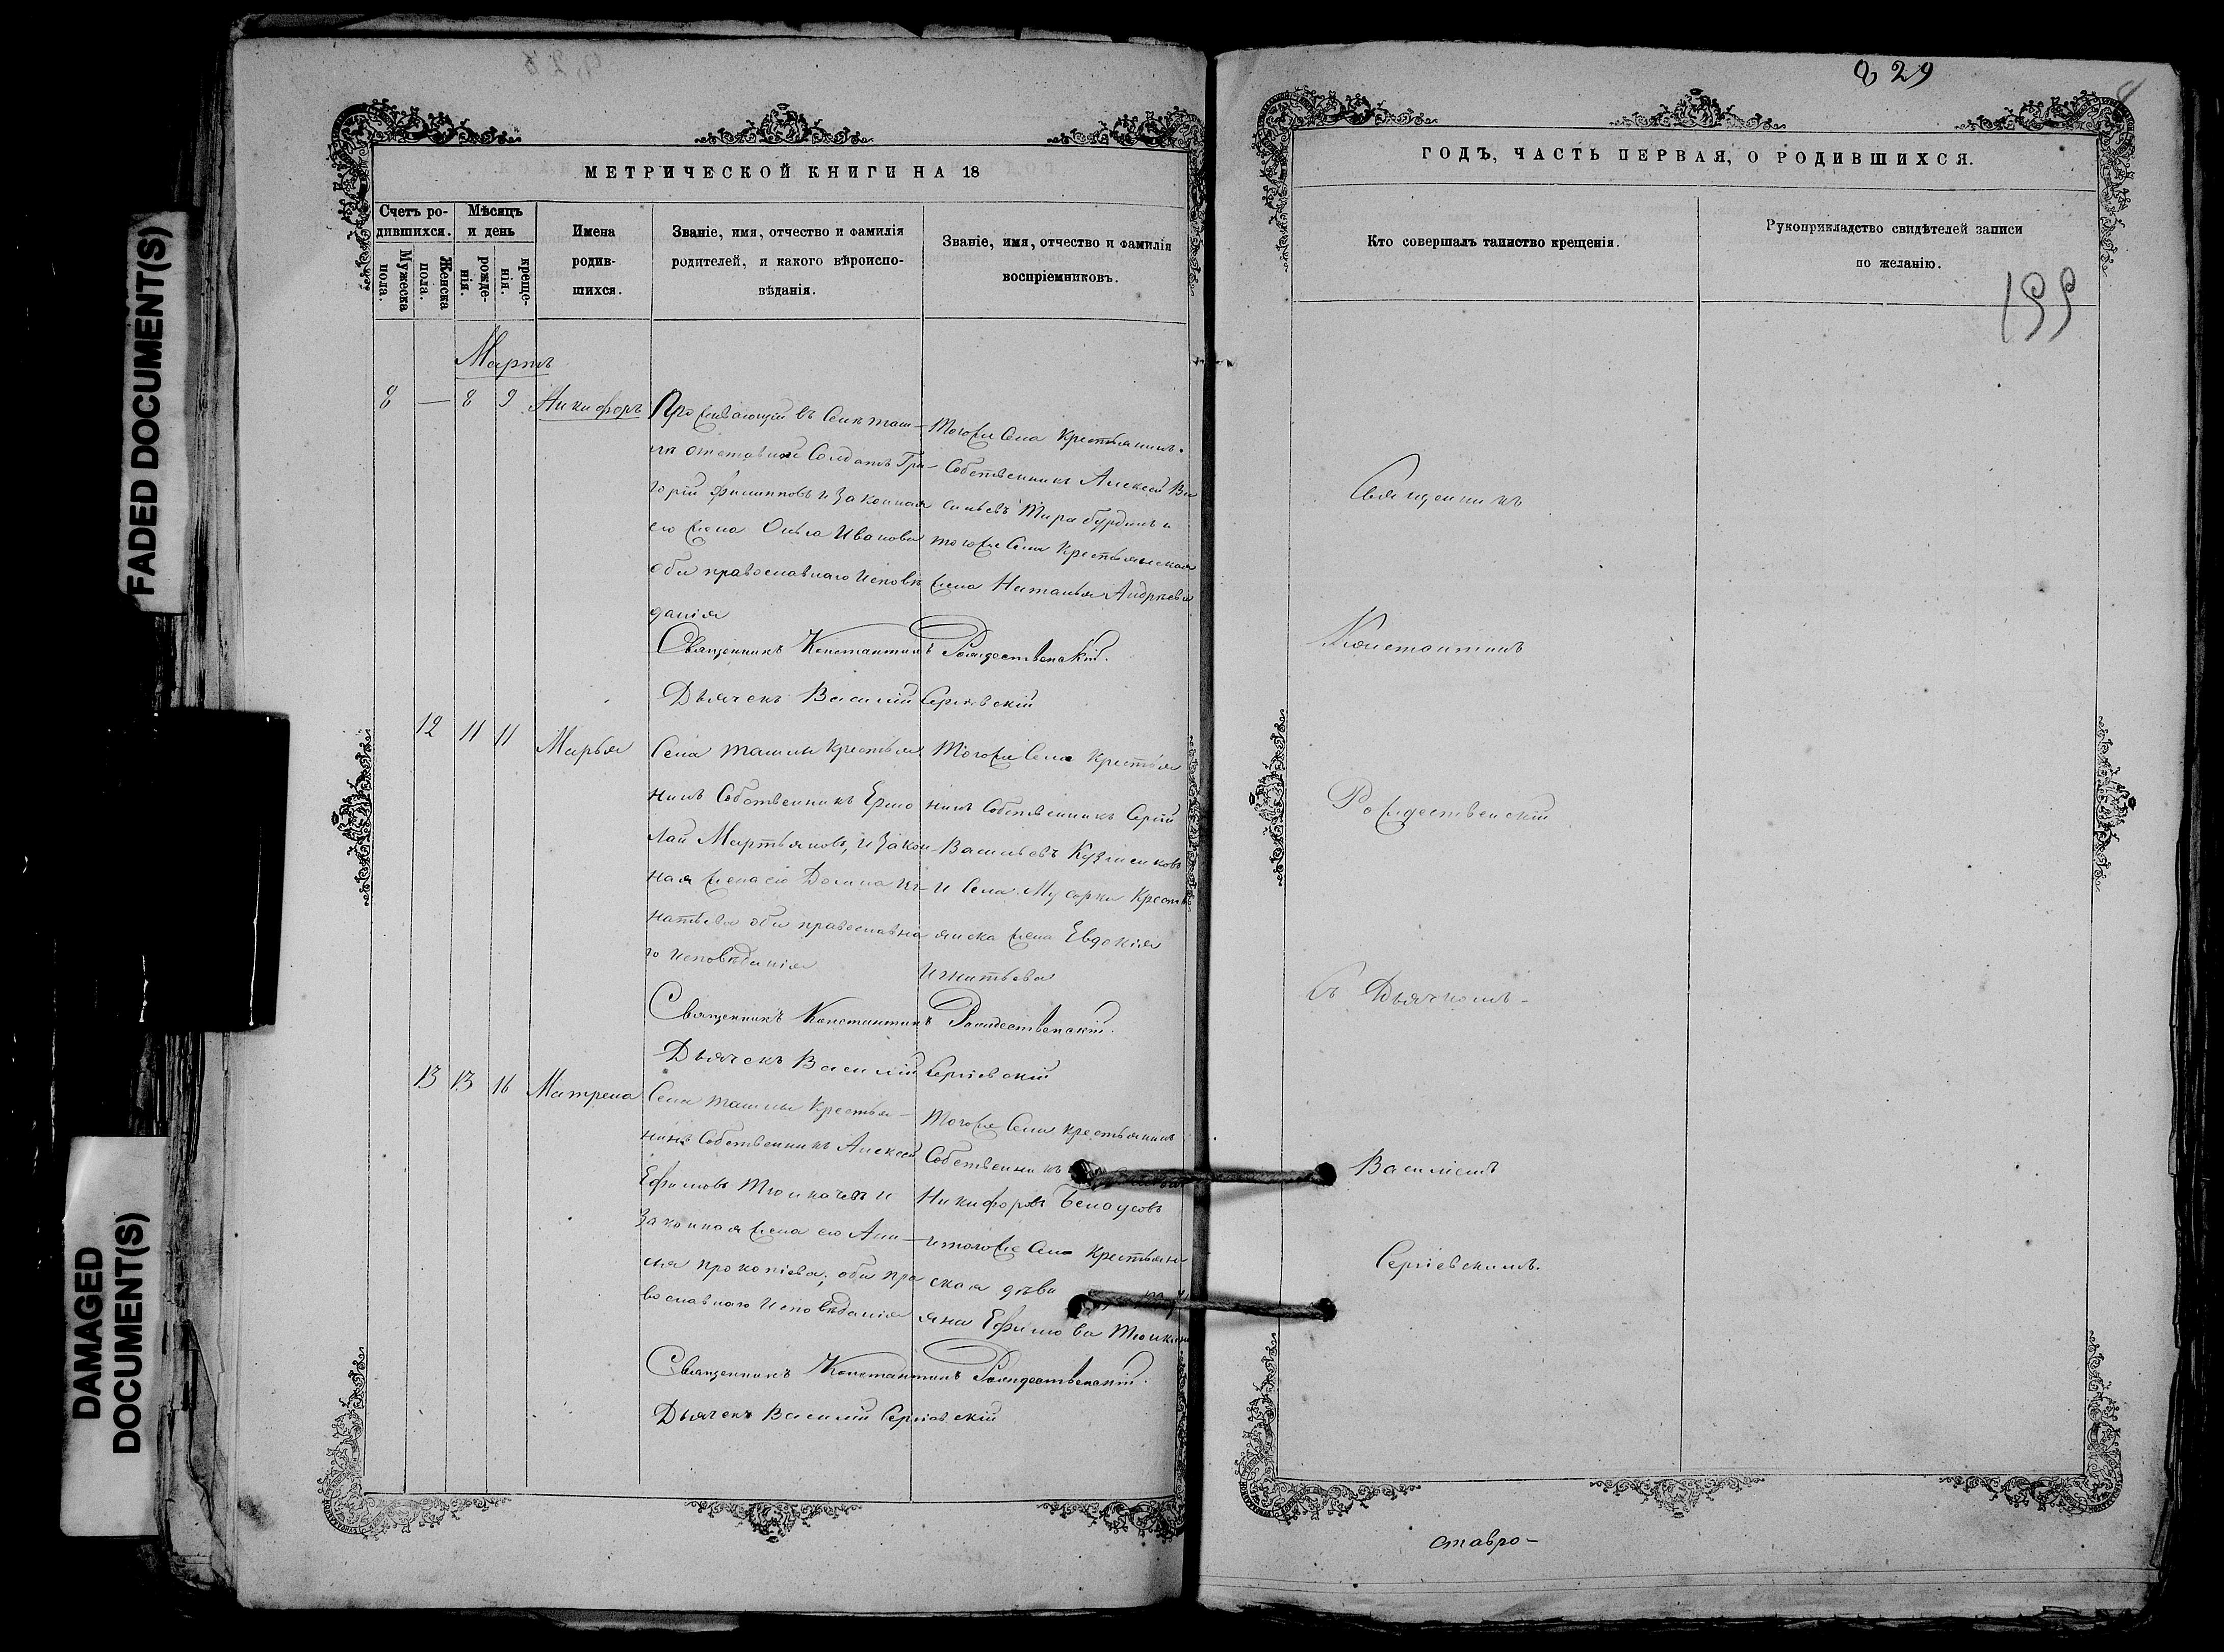 FADED DOCUMENT(S)
DAMAGED
DOCUMENT(S)
МЕТРИЧЕСКОЙ КНИГИ НА 18
Счетъ ро-
дившихся.
Мужеска
пола.
Женска
пола.
Мѣсяцъ
и день
рожде-
нія.
креще-
нія.
Имена
родив-
шихся.
Званіе, имя, отчество и фамилія
родителей, и какого вѣроиспо-
вѣданія.
Званіе, имя, отчество и фамилія
воспріемниковъ.
Мартъ
8 — 8 9 Никифоръ
Проживающій въ Селѣ Таш-
лѣ отставной Солдатъ Гри-
горій Филипповъ и Законная
его жена Ольга Иванова
оба православнаго Исповѣ
данія
Тогоже Села Крестьянинъ
Собственникъ Алексей Ва
сильевъ и
тогоже Села Крестьянская
жена Наталья Андрѣева
Священникъ Константинъ Рождественскій.
Дьячекъ Василій Сергіевскій
12 11 11 Марья
Села Ташлы Крестья
нинъ Собственникъ Ермо
лай Мартьяновъ, и Закон-
ная жена его Домна Иг-
натьева оба православна
го Исповѣданія
Тогоже Села Крестья
нинъ Собственникъ Сергій
Васильевъ
и Села Мусорки Кресть
янска жена Евдокія
Игнатьева
Священникъ Константинъ Рождественскій.
Дьячекъ Василій Сергіевскій
13 13 16 Матрена
Села Ташлы Крестья-
нинъ Собственникъ Алексей
Ефимовъ и
Законная жена его
Прокопіева, оба пра
вославнаго Исповѣданія
Тогоже Села Крестьянинъ
Собственникъ
Никифоровъ Белоусовъ
и тогоже Села Крестьян
ская дѣви
Ефимова
Священникъ Константинъ Рождественскій.
Дьячекъ Василій Сергіевскій
829
ГОДЪ, ЧАСТЬ ПЕРВАЯ, О РОДИВШИХСЯ.
Кто совершалъ таинство крещенія.
Рукоприкладство свидѣтелей записи
по желанію.
199
Священникъ
Константинъ
Рождественскій
съ Дьячкомъ-
Василіемъ
Сергіевскимъ.
ставро-